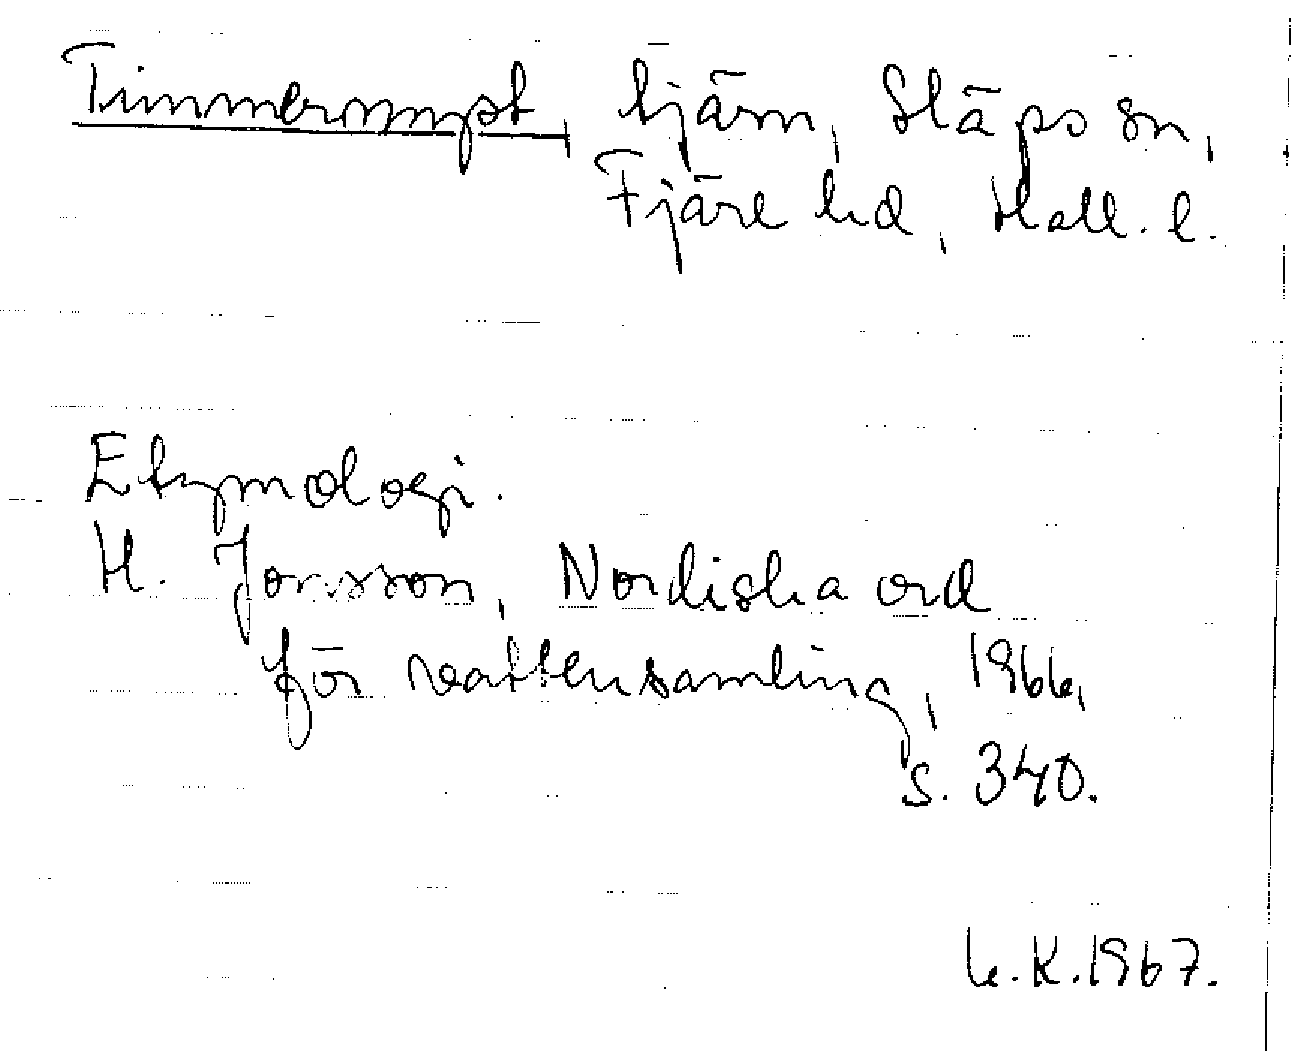 Timmermyst, tjärn, Släps sn,
Fjäre hd, Hall. l.
Etymologi.
H. Jonsson, Nordiska ord
för vattensamling, 1966,
s. 340.
K. 1967.